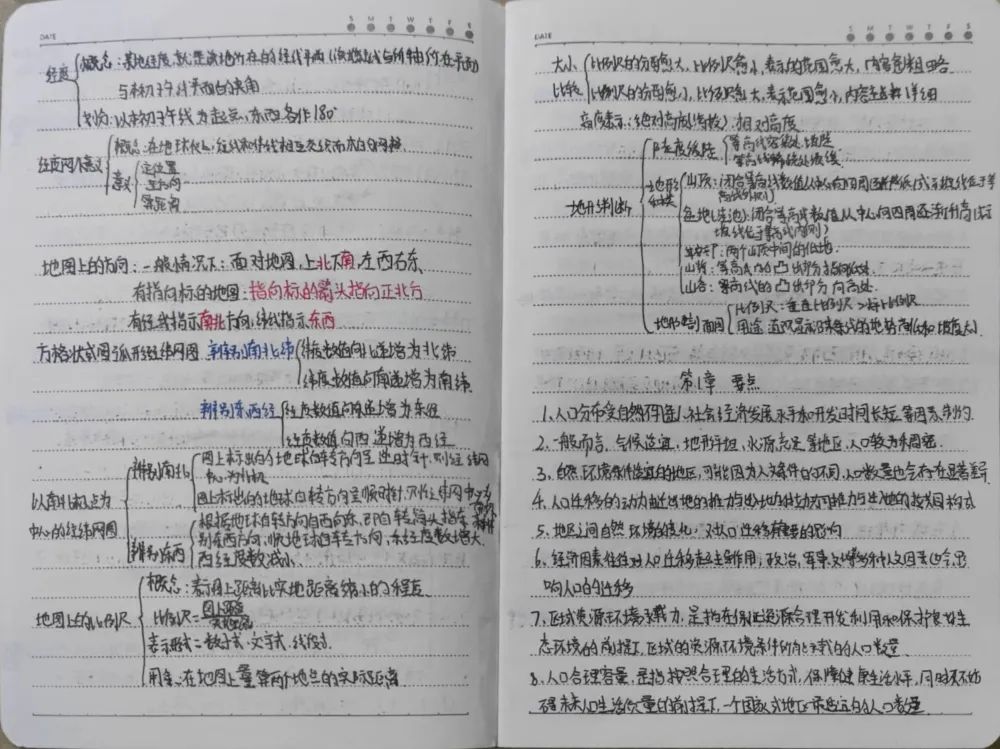 DATE
S M T W T F S
经度
概念：某地经度，就是该地所在的经线平面
与本初子午线平面的夹角
划分：以本初子午线为起点，东西各作180°
概念：在地球仪上，经线和纬线相互交织而成的网格
意义
定位置
定方向
算距离
地图上的方向：一般情况下：面对地图，上北下南，左西右东
有指向标的地图：指向标的箭头指向正北方
有经线指示南北方向，纬线指示东西
方格状或圆弧形经纬网图
辨别南北纬
纬度数值向北递增为北纬
纬度数值向南递增为南纬
辨别东西经
经度数值向东递增为东经
经度数值向西递增为西经
以南北极点为
中心的经纬网图
辨别南北
图上标出的地球自转方向呈逆时针，则经纬网
为北极
图上标出的地球自转方向呈顺时针，则经纬网中心为
辨别东西
根据地球自转方向自西向东，即自转箭头指东
别东西方向，顺地球自转方向，东经度数增大，
西经度数减小。
地图上的比例尺
概念：表示图上距离比实地距离缩小的程度
比例尺=图上距离
实地距离
表示形式：数字式、文字式、线段式
用途：在地图上量算两个地点的实际距离
DATE
S M T W T F S
大小
比较
比例尺的分母愈大，比例尺愈小，表示的范围愈大，内容愈粗略
比例尺的分母愈小，比例尺愈大，表示范围愈小，内容愈详细
高度表示：绝对高度（海拔）、相对高度
地形判断
陡缓
等高线密集处坡陡
等高线稀疏处坡缓
地形
山顶：闭合等高线数值从中心向四周逐渐降低
盆地（洼地）：闭合等高线数值从中心向四周逐渐升高
坡线在等高线内侧）
鞍部：两个山顶中间的低地
山脊：等高线的凸出部分指向低处
山谷：等高线的凸出部分向高处
地形剖面图
比例尺：垂直比例尺＞水平比例尺
用途
第1章 要点
1、人口分布受自然环境、社会经济发展水平和开发时间长短等因素制约
2、一般而言，气候适宜，地形平坦，水源充足等地区，人口较为稠密
3、自然环境条件适宜的地区，可能因为人文条件的不同，人口数量也会存在显著差异
4、人口迁移的动力由迁出地的推力与
5、地区之间自然环境的差化，对人口迁移有重要的影响
6、经济因素往往对人口迁移起主导作用，政治、军事、文增等多种人文因素也会影
响人口的迁移
7、区域资源环境承载力，是指在保证资源合理开发利用和保护良好生
态环境的前提下，区域的资源环境条件所能承载的人口数量
8、人口合理容量，是指按照合理的生活方式，保障健康生活水平，同时不妨
碍未来人口生活质量的前提下，一个国家或地区最适宜的人口数量